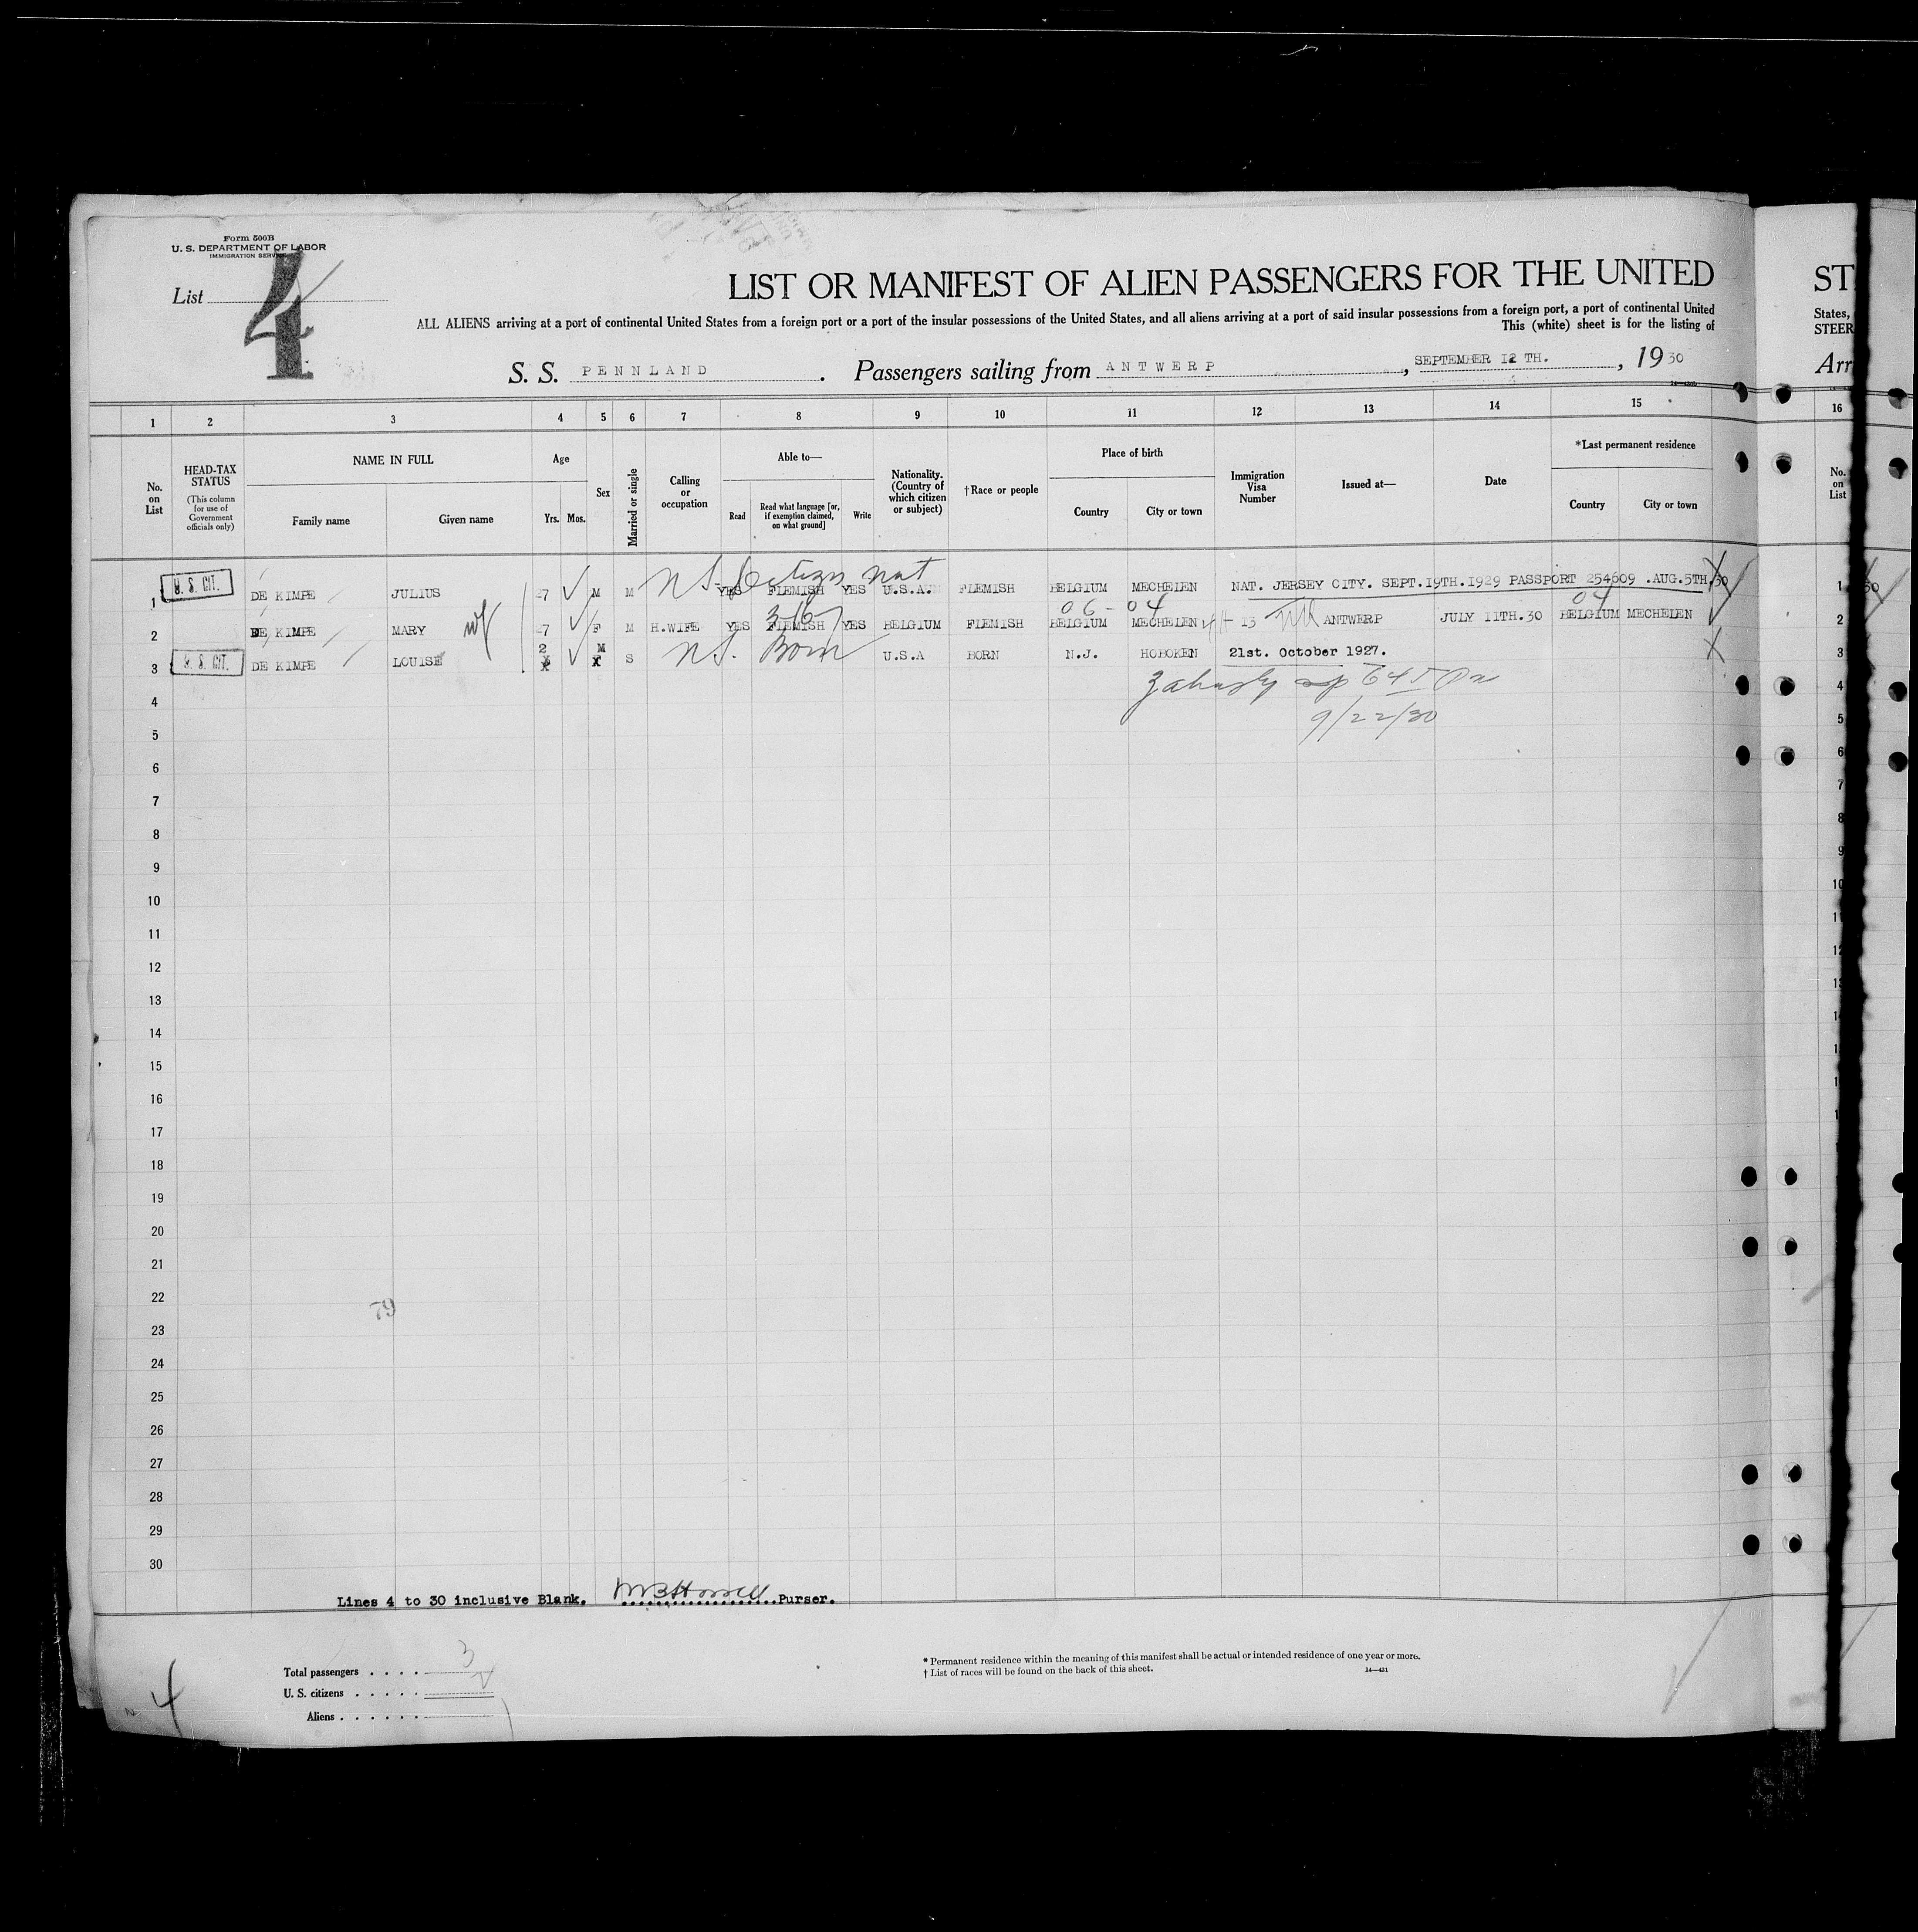 Form 500B
U. S. DEPARTMENT OF LABOR
IMMIGRATION SERVICE
List 4
LIST OR MANIFEST OF ALIEN PASSENGERS FOR THE UNITED
ST
ALL ALIENS arriving at a port of continental United States from a foreign port or a port of the insular possessions of the United States, and all aliens arriving at a port of said insular possessions from a foreign port, a port of continental United
States,
This (white) sheet is for the listing of
STEER
S. S. PENNLAND. Passengers sailing from ANTWERP, SEPTEMBER 12 TH., 1930
Arr
1 2 3 4 5 6 7 8 9 10 11 12 13 14 15 16
No. on List
HEAD-TAX STATUS
(This column for use of Government officials only)
NAME IN FULL
Family name
Given name
Age
Yrs. Mos.
Sex
Married or single
Calling or occupation
Able to—
Read
Read what language [or, if exemption claimed, on what ground]
Write
Nationality. (Country of which citizen or subject)
†Race or people
Place of birth
Country
City or town
Immigration Visa Number
Issued at—
Date
*Last permanent residence
Country
City or town
No. on List
U. S. Citizen nat
1 U. S. CIT. DE KIMPE JULIUS 27 M M YES FLEMISH YES U.S.A. FLEMISH BELGIUM MECHELEN NAT. JERSEY CITY. SEPT.19TH.1929 PASSPORT 254609 .AUG.5TH.30 1
06-04 04
2 DE KIMPE MARY wf 27 F M H.WIFE YES FLEMISH YES BELGIUM FLEMISH BELGIUM MECHELEN 13 ANTWERP JULY 11TH.30 BELGIUM MECHELEN 2
3 U. S. CIT. DE KIMPE LOUISE 2 M S U.S. Born U.S.A BORN N.J. HOBOKEN 21st. October 1927. 3
4 4
9/22/30
5 5
6 6
7 7
8 8
9 9
10 10
11 11
12 12
13 13
14
15
16
17
18
19
20
21
22
79
23
24
25
26
27
28
29
30
Lines 4 to 30 inclusive Blank. Purser.
Total passengers . . . . 3
U. S. citizens . . . . .
Aliens . . . . . .
4
* Permanent residence within the meaning of this manifest shall be actual or intended residence of one year or more.
† List of races will be found on the back of this sheet.
14—431